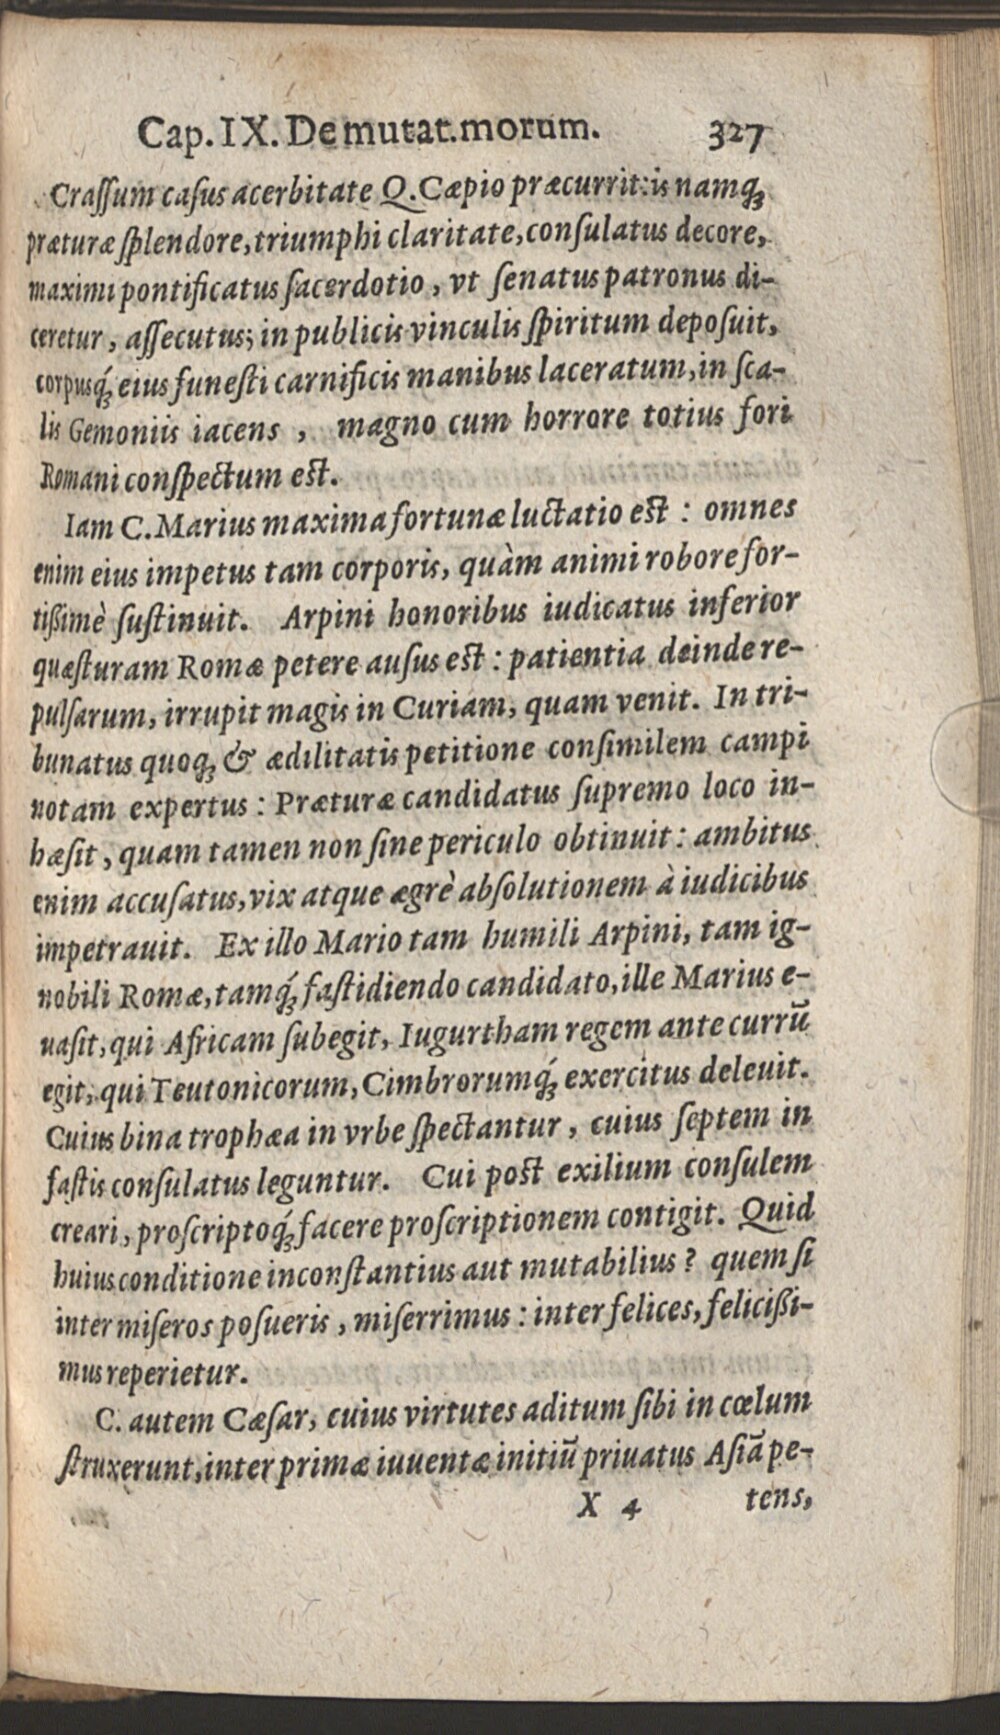 Cap. IX. De mutat. morum. 327
Craſſum caſus acerbitate Q. Cæpio præcurrit: is namq́ꝫ
præturæ ſplendore, triumphi claritate, conſulatus decore,
maximi pontificatus ſacerdotio, vt ſenatus patronus di-
ceretur, aſſecutus; in publicis vinculis ſpiritum depoſuit,
corpusq́ꝫ eius funeſti carnificis manibus laceratum, in ſca-
lis Gemoniis iacens, magno cum horrore totius fori
Romani conſpectum eſt.
Iam C. Marius maxima fortunæ luctatio eſt: omnes
enim eius impetus tam corporis, quàm animi robore for-
tißimè ſuſtinuit. Arpini honoribus iudicatus inferior
quæſturam Romæ petere auſus eſt: patientia deinde re-
pulſarum, irrupit magis in Curiam, quam venit. In tri-
bunatus quoqꝫ & ædilitatis petitione conſimilem campi
notam expertus: Præturæ candidatus ſupremo loco in-
hæſit, quam tamen non ſine periculo obtinuit: ambitus
enim accuſatus, vix atque ægrè abſolutionem à iudicibus
impetrauit. Ex illo Mario tam humili Arpini, tam ig-
nobili Romæ, tamq́ꝫ faſtidiendo candidato, ille Marius e-
uaſit, qui Africam ſubegit, Iugurtham regem ante currū
egit, qui Teutonicorum, Cimbrorumq́ꝫ exercitus deleuit.
Cuius bina trophæa in vrbe ſpectantur, cuius ſeptem in
faſtis conſulatus leguntur. Cui poſt exilium conſulem
creari, proſcriptoq́ꝫ facere proſcriptionem contigit. Quid
huius conditione inconſtantius aut mutabilius? quem ſi
inter miſeros poſueris, miſerrimus: inter felices, felicißi-
mus reperietur.
C. autem Cæſar, cuius virtutes aditum ſibi in cœlum
ſtruxerunt, inter primæ iuuentæ initiū priuatus Aſiā pe-
X 4 tens,